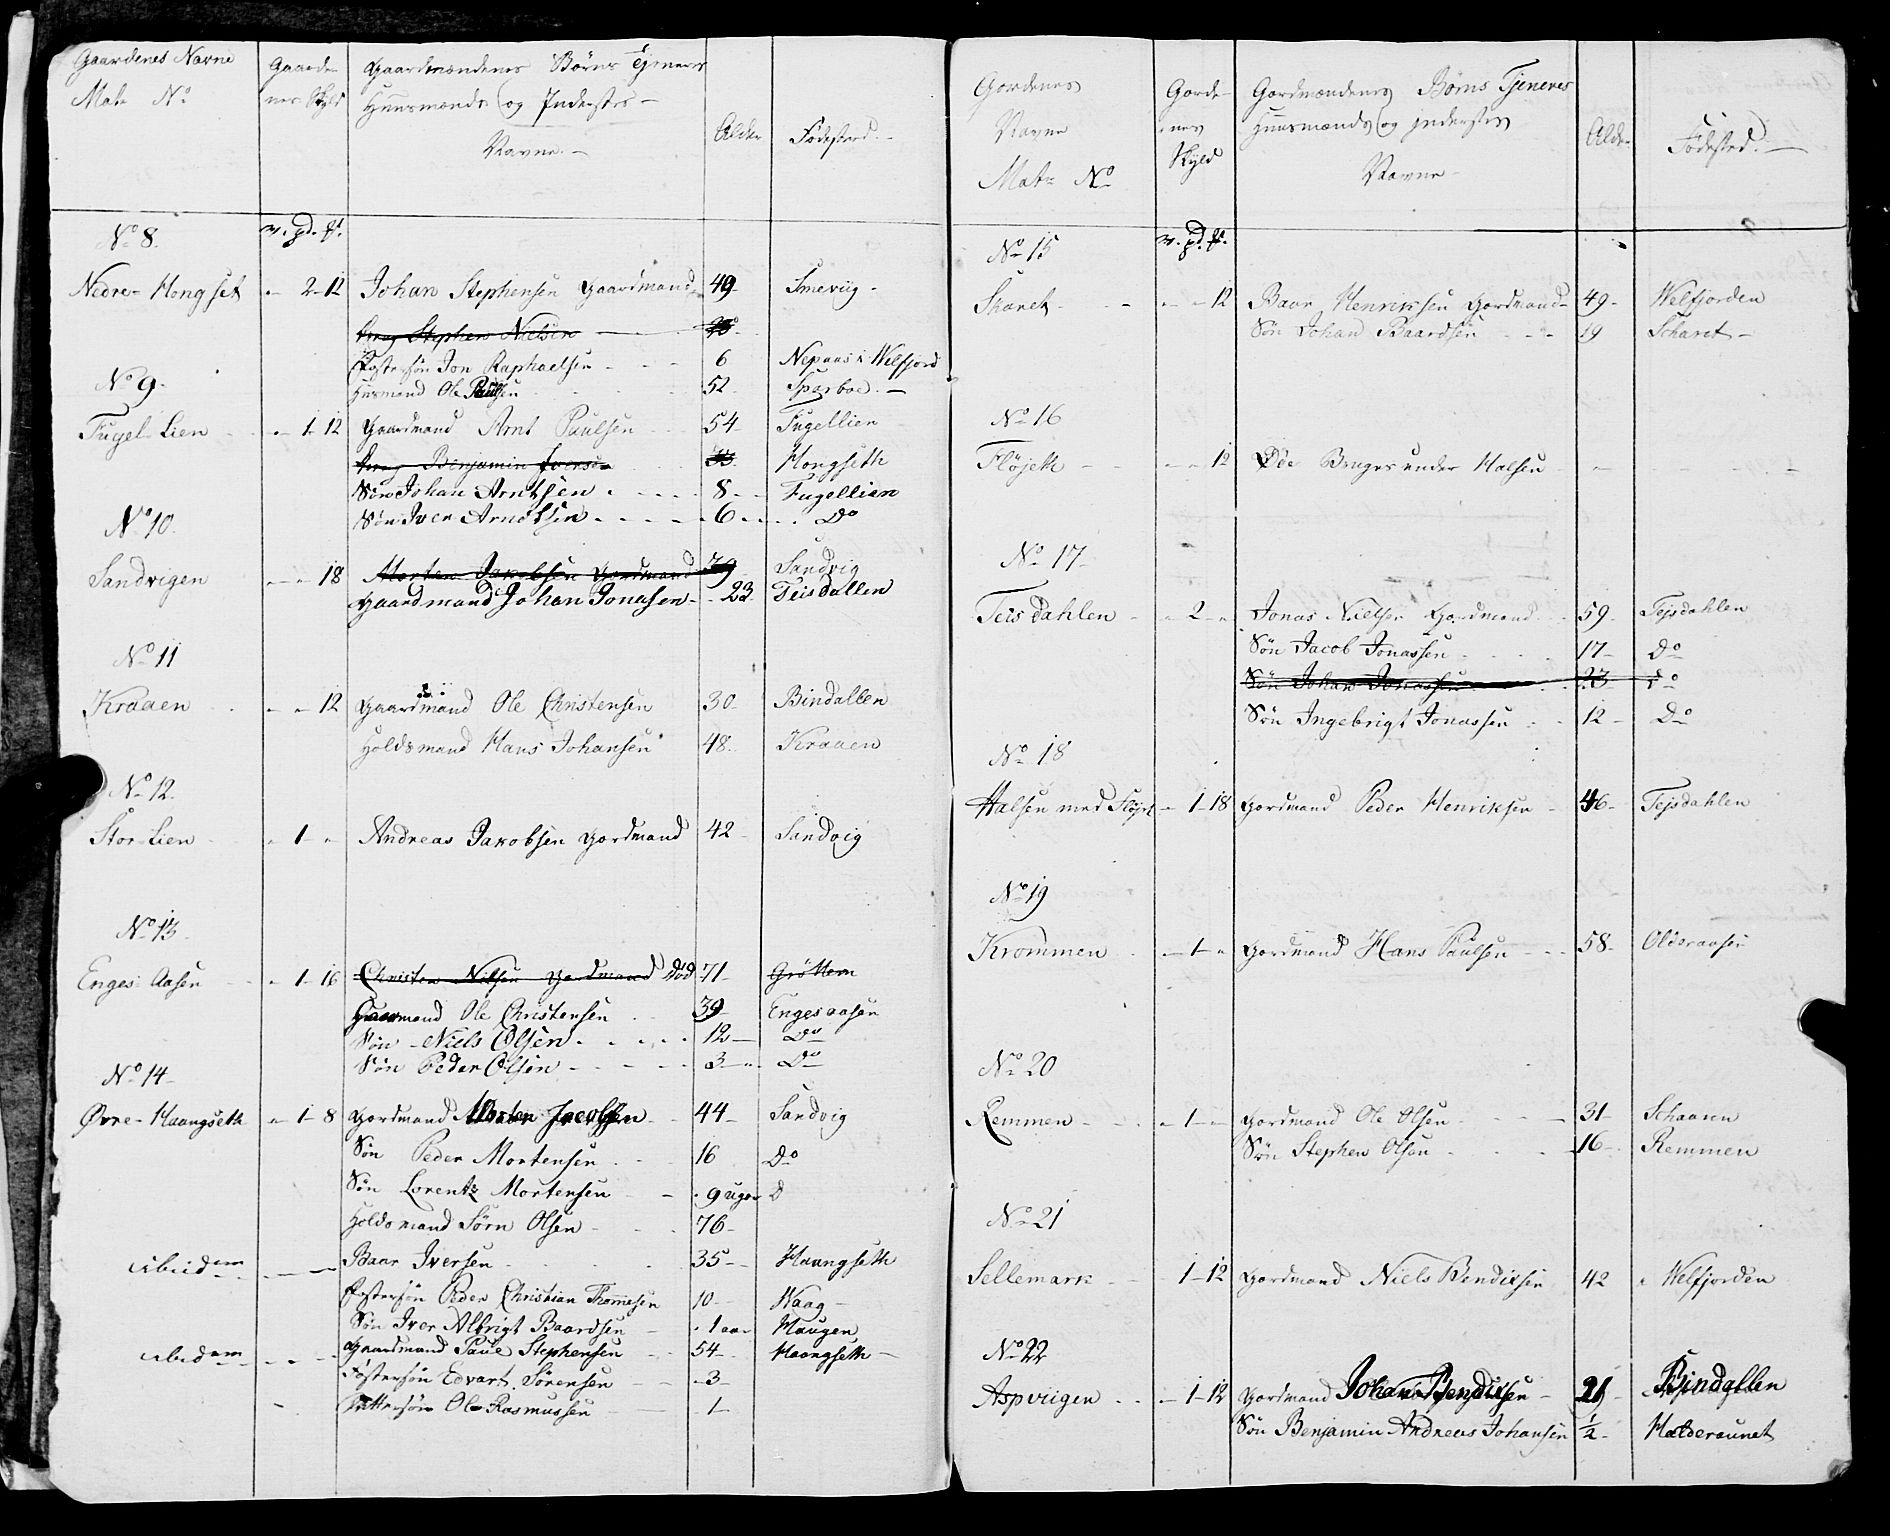 Gaardenes Navne
Matr No
Gaarde-
nes Skyld
Gaardmændenes Børns Tjeneres
Huusmænds og Inderstes
Navne. –
Alder
Fødested. –
No 8.
v. pd. #.
Nedre-Hongset - 2-12 Johan Stephensen Gaardmand 49 Smeviig -
Stephen Nielsen
Fostersøn Jon Raphaelsen 6 Nepaas i Welfjord
No 9.
Husmand Ole Paulsen 52. Sparboe. –
Fugel-Lien - 1-12 Gaardmand Arnt Paulsen 54 Fugellien
Benjamin Iversen Hongseth
Søn Johan Arntsen 8 Fugellien
No 10.
Søn Iver Arntsen 6 Do
Sandvigen - - 18 Morten Jakobsen Gordmand 79 Sandvig
Gaardmand Johan Jonasen - 23 Teisdallen
No 11
Kraaen - - 12 Gaardmand Ole Christensen 30 Bindallen
Holdsmand Hans Johansen 48. Kraaen
No 12.
Stor-Lien - 1 - Andreas Jakobsen Gordmand 42 Sandvig
No 13.
Enges-Aasen - 1-16 Christen Nilsen Gordmand Død 71 Grøttem
Gordmand Ole Christensen 39 Engesaasen
Søn Niels Olsen 12 Do
Søn Peder Olsen 3 Do
No 14
Øvre-Haangseth - 1-8 Gordmand Morten Jacobsen 44 Sandvig
Søn Peder Mortensen 16 Do
Søn Lorentz Mortensen 9 uger D
Holdsmand Sørn Olsen 76
ibidem - - - Baar Iversen 35 Haangseth
Fostersøn Peder Christian Thomesen 10 Waag
Søn Iver Albrigt Baardsen 1 aar Haugen
ibidem - - - Gaardmand Paul Stephensen 54 Haangseth
Fostersøn Edvart Sørensen 3
Ole Rasmussen 1
Gordenes
Navne
Matr No
Gorde-
nes
Skyld
Gordmændenes Børns Tjeneres
Huusmænds og Inderstes
Navne
Alder
Fødested. –
No 15
v. pd. #.
Skaret - - 12 Baar Henriksen Gordmand 49 Welfjorden
Søn Johan Baardsen 19 Scharet
No 16
Fløjeth - - 12 Øde Bruges under Halsen
No 17
Teisdahlen - 2 - Jonas Nielsen Gordmand 59 Tejsdahlen
Søn Jacob Jonassen 17 Do
Søn Johan Jonassen 23 Do
Søn Ingebrigt Jonassen 12 Do
No 18
Halsen med Fløjet - 1-18 Gordmand Peder Henriksen 46 Tejsdahlen
No 19
Krommen - 1 - Gordmand Hans Paulsen 58 Olderaasen
No 20
Remmen - 1 - Gordmand Ole Olsen 31 Schaaren
Søn Stephen Olsen 16 Remmen
No 21
Sellemark 1-12 Gordmand Niels Bendixen 42 Welfjorden
No 22
Aspviigen - 1-12 Gordmand Johan Bendixsen 21 Bindallen
Søn Benjamin Andreas Johansen 1/2 Halderaunet